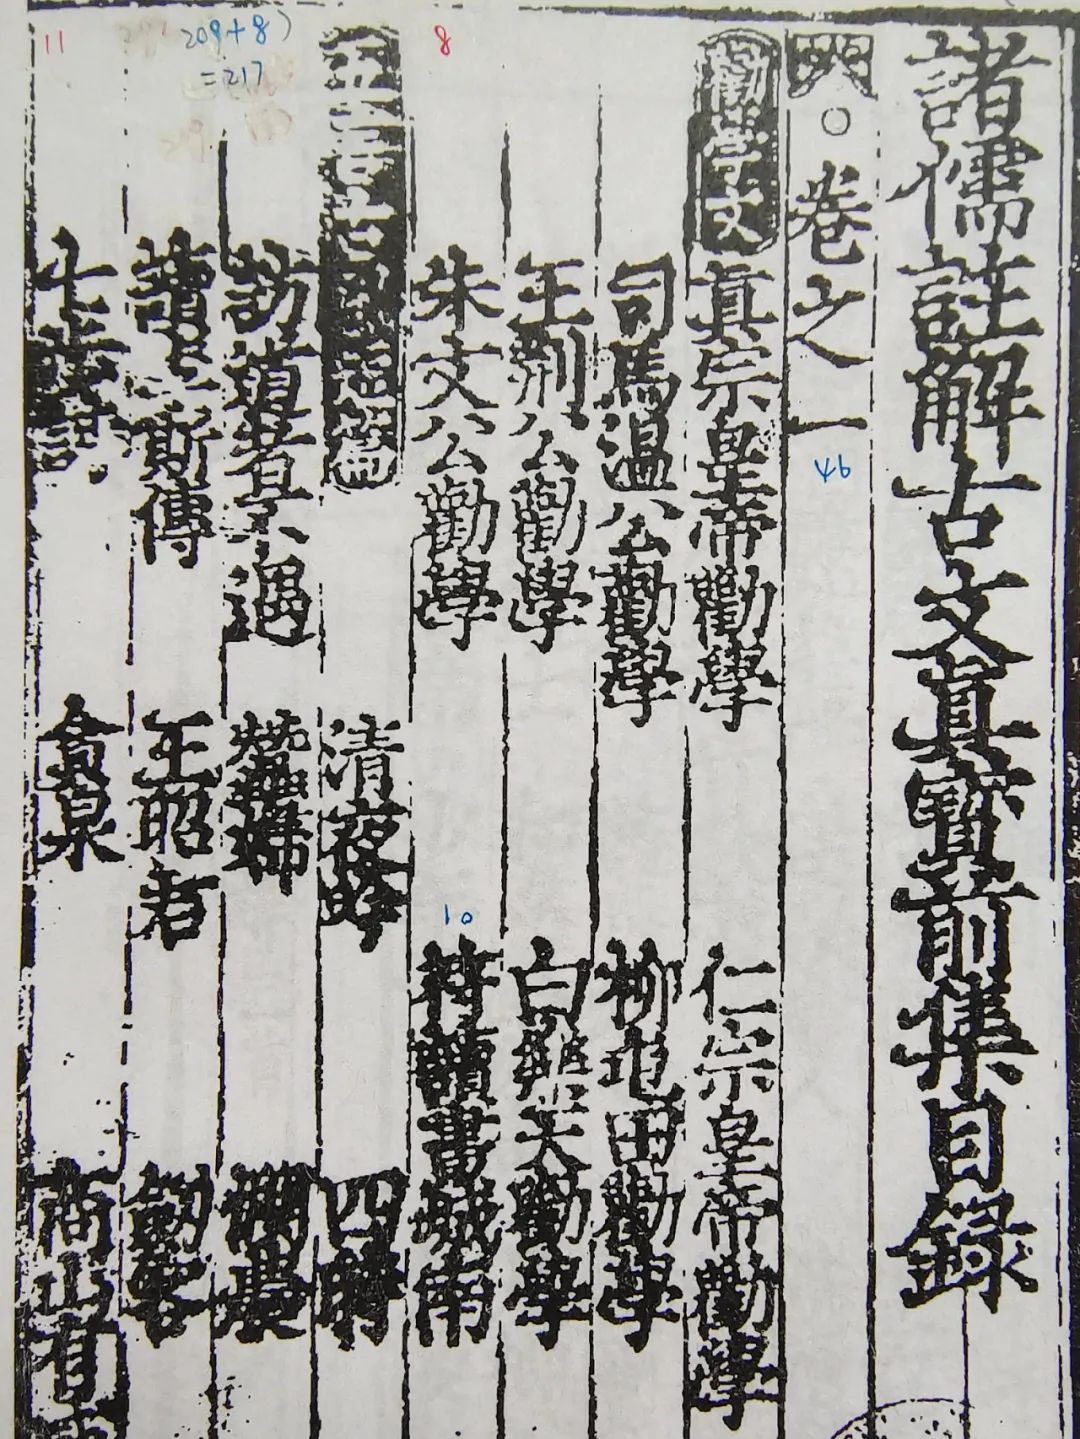 諸儒註解古文眞寳前集目録
○巻之一
46
勸學文 眞宗皇帝勸學 仁宗皇帝勸學
司馬温公勸學 柳屯田勸學
王荆公勸學 白樂天勸學
8
朱文公勸學 符讀書城南
10
五言古風短篇 清夜吟 四時
訪道者不遇 蠶婦 憫農
209+8)
=217
讀李斯傳 王昭君 劒客
11
七歩詩 貪泉 商山有